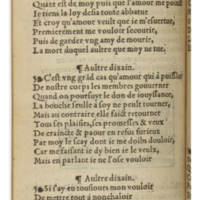 Quant est de moy puis que l'amour me
Ie tiens la loy desia toute abbatue
Et croy qu'amour veult que ie m'esuertue,
Premierement me vouloir secourir,
Puis de garder vng amy de mourir,
La mort duquel aultre que moy ne tue,
¶ Aultre dixain.
C'est vng grãd cas qu'amour qui à puissãce
De nostre corps les membres gouuerner
Quand on poursuyt le don de iouyssance,
La bouche seulle à soy ne peult tourner,
Mais au contraire elle faict retourner
Tous ses plaisirs, ses promesses & veux
De craincte & paour en refuz furieux
Par moy le scay dont ie me doibs douloir,
Car me faisant ie dy bien ie le veulx,
Mais en parlant ie ne l'ose vouloir
¶ Aultre dixain.
Si i'ay eu tousiours mon vouloir
De mettre tout à nonchaloir